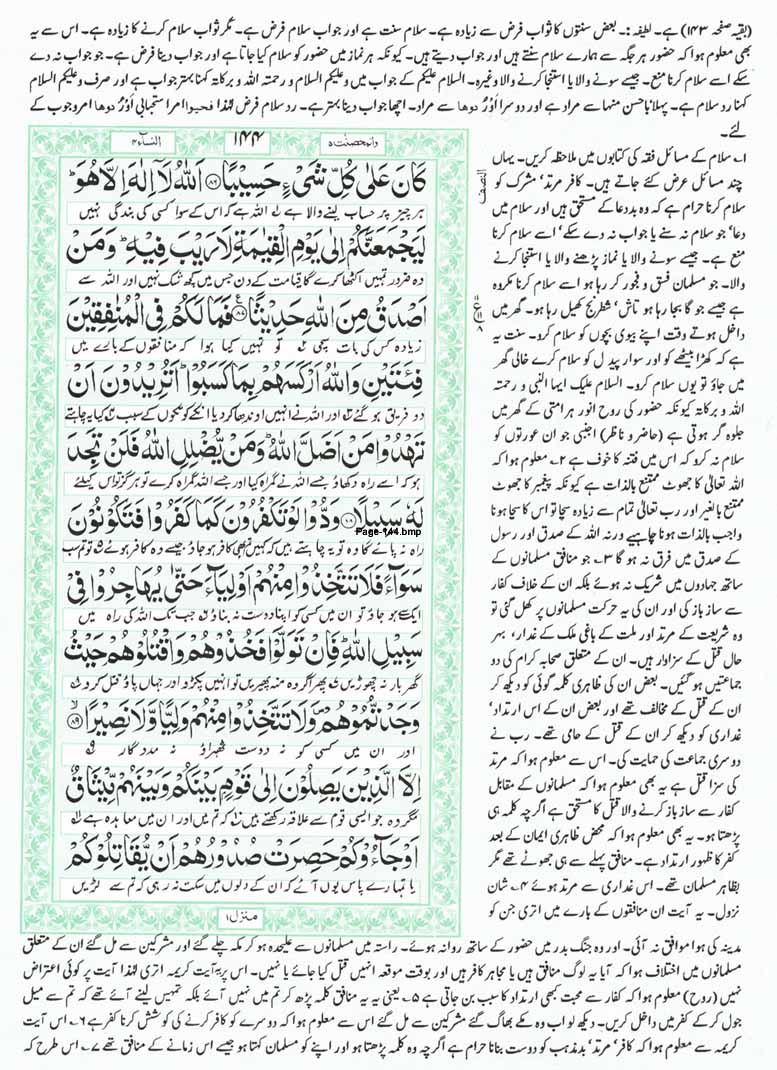 (بقیہ صفحہ ۱۴۳) ہے۔ لطیفہ :۔ بعض سنتوں کا ثواب فرض سے زیادہ ہے۔ سلام سنت ہے اور جواب سلام فرض ہے۔ مگر ثواب سلام کرنے کا زیادہ ہے۔ اس سے یہ
بھی معلوم ہوا کہ حضور ہر جگہ سے ہمارے سلام سنتے ہیں اور جواب دیتے ہیں۔ کیونکہ ہر نماز میں حضور کو سلام کیا جاتا ہے اور جواب دینا فرض ہے۔ جو جواب نہ دے
سکے اسے سلام کرنا منع۔ جیسے سونے والا یا استنجا کرنے والا وغیرہ۔ السلام علیکم کے جواب میں وعلیکم السلام و رحمتہ اللہ و برکاتہ کہنا بہتر جواب ہے اور صرف وعلیکم السلام
کہنا رد سلام ہے۔ پہلا باحسن منھا سے مراد ہے اور دوسرا اَوْرُدُّوھا سے مراد۔ اچھا جواب دینا بہتر ہے۔ رد سلام فرض لہٰذا فحیوا امر استحبابی اَوْرُدُّوھا امر وجوب کے
لئے۔
والمحصنت ۵
۱۴۴
النساء ۴
كَانَ عَلٰى كُلِّ شَیْءٍ حَسِیْبًا ﴿۸۶﴾ اَللّٰهُ لَاۤ اِلٰهَ اِلَّا هُوَؕ
ہر چیز پر حساب لینے والا ہے اللہ ہے کہ اس کے سوا کسی کی بندگی نہیں
لَیَجْمَعَنَّكُمْ اِلٰى یَوْمِ الْقِیٰمَةِ لَا رَیْبَ فِیْهِؕ وَ مَنْ
وہ ضرور تمہیں اکٹھا کرے گا قیامت کے دن جس میں کچھ شک نہیں اور اللہ سے
اَصْدَقُ مِنَ اللّٰهِ حَدِیْثًا ﴿۸۷﴾ فَمَا لَكُمْ فِی الْمُنٰفِقِیْنَ
زیادہ کس کی بات سچی تو تمہیں کیا ہوا کہ منافقوں کے بارے میں
فِئَتَیْنِ وَ اللّٰهُ اَرْكَسَهُمْ بِمَا كَسَبُوْاؕ اَتُرِیْدُوْنَ اَنْ
دو فریق ہو گئے اور اللہ نے انہیں اوندھا کر دیا انکے کوتکوں کے سبب کیا یہ چاہتے
تَهْدُوْا مَنْ اَضَلَّ اللّٰهُؕ وَ مَنْ یُّضْلِلِ اللّٰهُ فَلَنْ تَجِدَ
ہو کہ اسے راہ دکھاؤ جسے اللہ نے گمراہ کیا اور جسے اللہ گمراہ کرے تو ہرگز تو اس کیلئے
لَهٗ سَبِیْلًا ﴿۸۸﴾ وَدُّوْا لَوْ تَكْفُرُوْنَ كَمَا كَفَرُوْا فَتَكُوْنُوْنَ
Page-144.bmp
راہ نہ پائے گا وہ تو یہ چاہتے ہیں کہ کہیں تم بھی کافر ہو جاؤ جیسے وہ کافر ہوئے تو تم سب
سَوَآءً فَلَا تَتَّخِذُوْا مِنْهُمْ اَوْلِیَآءَ حَتّٰى یُهَاجِرُوْا فِیْ
ایک سے ہو جاؤ تو ان میں کسی کو اپنا دوست نہ بناؤ جب تک اللہ کی راہ میں
سَبِیْلِ اللّٰهِؕ فَاِنْ تَوَلَّوْا فَخُذُوْهُمْ وَ اقْتُلُوْهُمْ حَیْثُ
گھر بار نہ چھوڑیں پھر اگر وہ منہ پھیریں تو انہیں پکڑو اور جہاں پاؤ قتل کرو
وَجَدْتُّمُوْهُمْ۪ وَ لَا تَتَّخِذُوْا مِنْهُمْ وَلِیًّا وَّ لَا نَصِیْرًاۙ ﴿۸۹﴾
اور ان میں کسی کو نہ دوست ٹھہراؤ نہ مددگار
اِلَّا الَّذِیْنَ یَصِلُوْنَ اِلٰى قَوْمٍۭ بَیْنَكُمْ وَ بَیْنَهُمْ مِّیْثَاقٌ
مگر وہ جو ایسی قوم سے علاقہ رکھتے ہیں کہ تم میں اور ان میں معاہدہ ہے
اَوْ جَآءُوْكُمْ حَصِرَتْ صُدُوْرُهُمْ اَنْ یُّقَاتِلُوْكُمْ
یا تمہارے پاس یوں آئے کہ ان کے دلوں میں سکت نہ رہی کہ تم سے لڑیں
منزل ۱
النصف
ع
۱؎ سلام کے مسائل فقہ کی کتابوں میں ملاحظہ کریں۔ یہاں
چند مسائل عرض کئے جاتے ہیں۔ کافر مرتد، مشرک کو
سلام کرنا حرام ہے کہ وہ بددعا کے مستحق ہیں اور سلام میں
دعا، جو سلام نہ سنے یا جواب نہ دے سکے، اسے سلام کرنا
منع ہے۔ جیسے سونے والا یا نماز پڑھنے والا یا استنجا کرنے
والا۔ جو مسلمان فسق و فجور کر رہا ہو اسے سلام کرنا مکروہ
ہے جیسے جو گا بجا رہا ہو تاش، شطرنج کھیل رہا ہو۔ گھر میں
داخل ہوتے وقت اپنے بیوی بچوں کو سلام کرو۔ سنت یہ
ہے کہ کھڑا بیٹھے کو اور سوار پیدل کو سلام کرے خالی گھر
میں جاؤ تو یوں سلام کرو۔ السلام علیک ایہا النبی و رحمتہ
اللہ و برکاتہ کیونکہ حضور کی روح انور ہر امتی کے گھر میں
جلوہ گر ہوتی ہے (حاضر و ناظر) اجنبی جوان عورتوں کو
سلام نہ کرو کہ اس میں فتنہ کا خوف ہے ۲؎ معلوم ہوا کہ
اللہ تعالیٰ کا جھوٹ ممتنع بالذات ہے کیونکہ پیغمبر کا جھوٹ
ممتنع بالغیر اور رب تعالیٰ تمام سے زیادہ سچا تو اس کا سچا ہونا
واجب بالذات ہونا چاہیے ورنہ اللہ کے صدق اور رسول
کے صدق میں فرق نہ ہو گا ۳؎ جو منافق مسلمانوں کے
ساتھ جہادوں میں شریک نہ ہوئے بلکہ ان کے خلاف کفار
سے ساز باز کی اور ان کی یہ حرکت مسلمانوں پر کھل گئی تو
وہ شریعت کے مرتد اور ملت کے باغی ملک کے غدار، بہر
حال قتل کے سزاوار ہیں۔ ان کے متعلق صحابہ کرام کی دو
جماعتیں ہو گئیں۔ بعض ان کی ظاہری کلمہ گوئی کو دیکھ کر
ان کے قتل کے مخالف تھے اور بعض ان کے اس ارتداد،
غداری کو دیکھ کر ان کے قتل کے حامی تھے۔ رب نے
دوسری جماعت کی حمایت کی۔ اس سے معلوم ہوا کہ مرتد
کی سزا قتل ہے یہ بھی معلوم ہوا کہ مسلمانوں کے مقابل
کفار سے ساز باز کرنے والا قتل کا مستحق ہے اگرچہ کلمہ ہی
پڑھتا ہو۔ یہ بھی معلوم ہوا کہ محض ظاہری ایمان کے بعد
کفر کا ظہور ارتداد ہے۔ منافق پہلے سے ہی جھوٹے تھے مگر
بظاہر مسلمان تھے۔ اس غداری سے مرتد ہوئے ۴؎ شان
نزول۔ یہ آیت ان منافقوں کے بارے میں اتری جن کو
مدینہ کی ہوا موافق نہ آئی۔ اور وہ جنگ بدر میں حضور کے ساتھ روانہ ہوئے۔ راستہ میں مسلمانوں سے علیحدہ ہو کر مکہ چلے گئے اور مشرکین سے مل گئے ان کے متعلق
مسلمانوں میں اختلاف ہوا کہ آیا یہ لوگ منافق ہیں یا مجاہر کافر ہیں اور بوقت موقعہ انہیں قتل کیا جائے یا نہیں۔ اس پر یہ آیت کریمہ اتری لہٰذا آیت پر کوئی اعتراض
نہیں (روح) معلوم ہوا کہ کفار سے محبت کبھی ارتداد کا سبب بن جاتی ہے ۵؎ یعنی یہ یہ منافق کلمہ پڑھ کر تم میں نہیں آئے بلکہ تمہیں لینے آئے تھے کہ تم سے میل
جول کر کے کفر میں داخل کریں۔ دیکھ لو اب وہ مکے بھاگ گئے مشرکین سے مل گئے اس سے معلوم ہوا کہ دوسرے کو کافر کرنے کی کوشش کرنا کفر ہے ۶؎ اس آیت
کریمہ سے معلوم ہوا کہ کافر، مرتد، بدمذہب کو دوست بنانا حرام ہے اگرچہ وہ کلمہ پڑھتا ہو اور اپنے کو مسلمان کہتا ہو جیسے اس زمانے کے منافق تھے ۷؎ اس طرح کہ